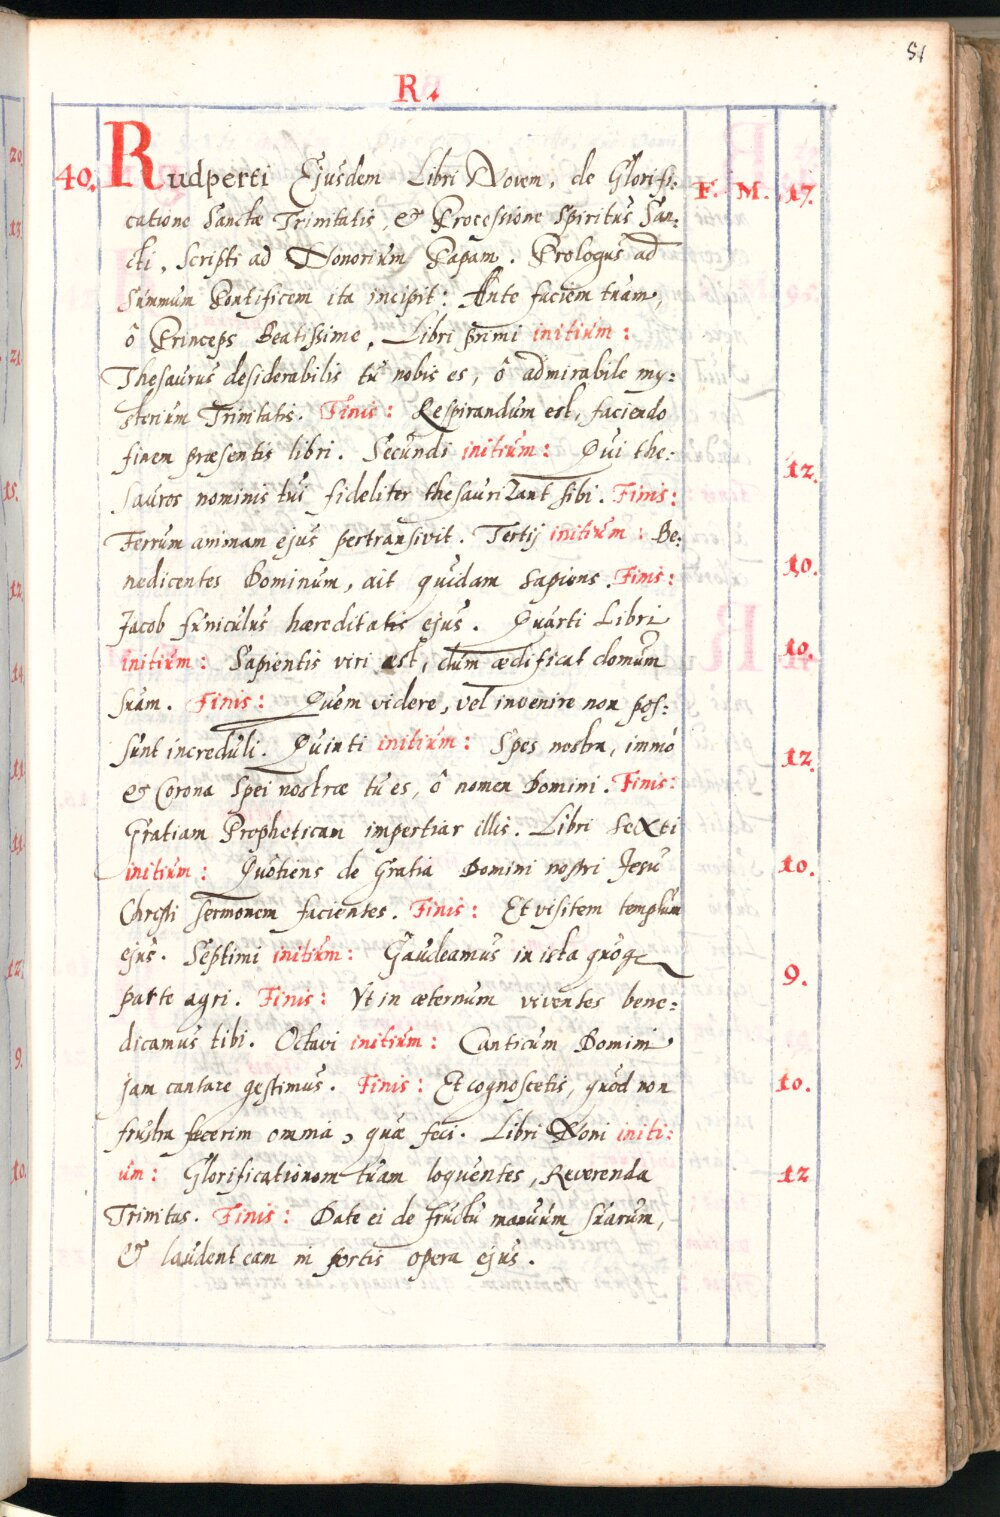 51
R.
40. Rudperti Ejusdem Libri Novem, de Glorifi: F. M. 17.
catione Sanctæ Trinitatis, & Processione Spiritus San:
cti, scripti ad Honorium Papam. Prologus ad
Summum Pontificem ita incipit: Ante faciem tuam,
ô Princeps Beatissime, Libri primi initium:
Thesaurus desiderabilis tu nobis es, ô admirabile my:
sterium Trinitatis. Finis: Respirandum est, faciendo
finem præsentis libri. Secundi initium: Qui the: 12.
sauros nominis tui fideliter thesaurizant sibi. Finis:
Ferrum animam ejus pertransivit. Tertij initium: Be: 10.
nedicentes Dominum, ait quidam sapiens. Finis:
Jacob funiculus hæreditatis ejus. Quarti Libri 10.
initium: Sapientis viri est, dum ædificat domum
suam. Finis: Quem videre, vel invenire non pos:
sunt increduli. Quinti initium: Spes nostra, immò 12.
& Corona Spei nostræ tu es, ô nomen Domini. Finis:
Gratiam Propheticam impertiar illis. Libri Sexti
initium: Quotiens de Gratia Domini nostri Jesu 10.
Christi sermonem facientes. Finis: Et visitem templum
ejus. Septimi initium: Gaudeamus in ista quoq
parte agri. Finis: Vt in æternum viventes bene: 9.
dicamus tibi. Octavi initium: Canticum Domini
jam cantare gestimus. Finis: Et cognoscetis, quòd non 10.
frustra fecerim omnia, quæ feci. Libri Noni initi:
um: Glorificationem tuam loquentes, Reverenda 12
Trinitas. Finis: Date ei de fructu manuum suarum,
& laudent eam in portis opera ejus.
20.
13.
21.
15.
12.
14.
11.
11.
12.
9.
10.